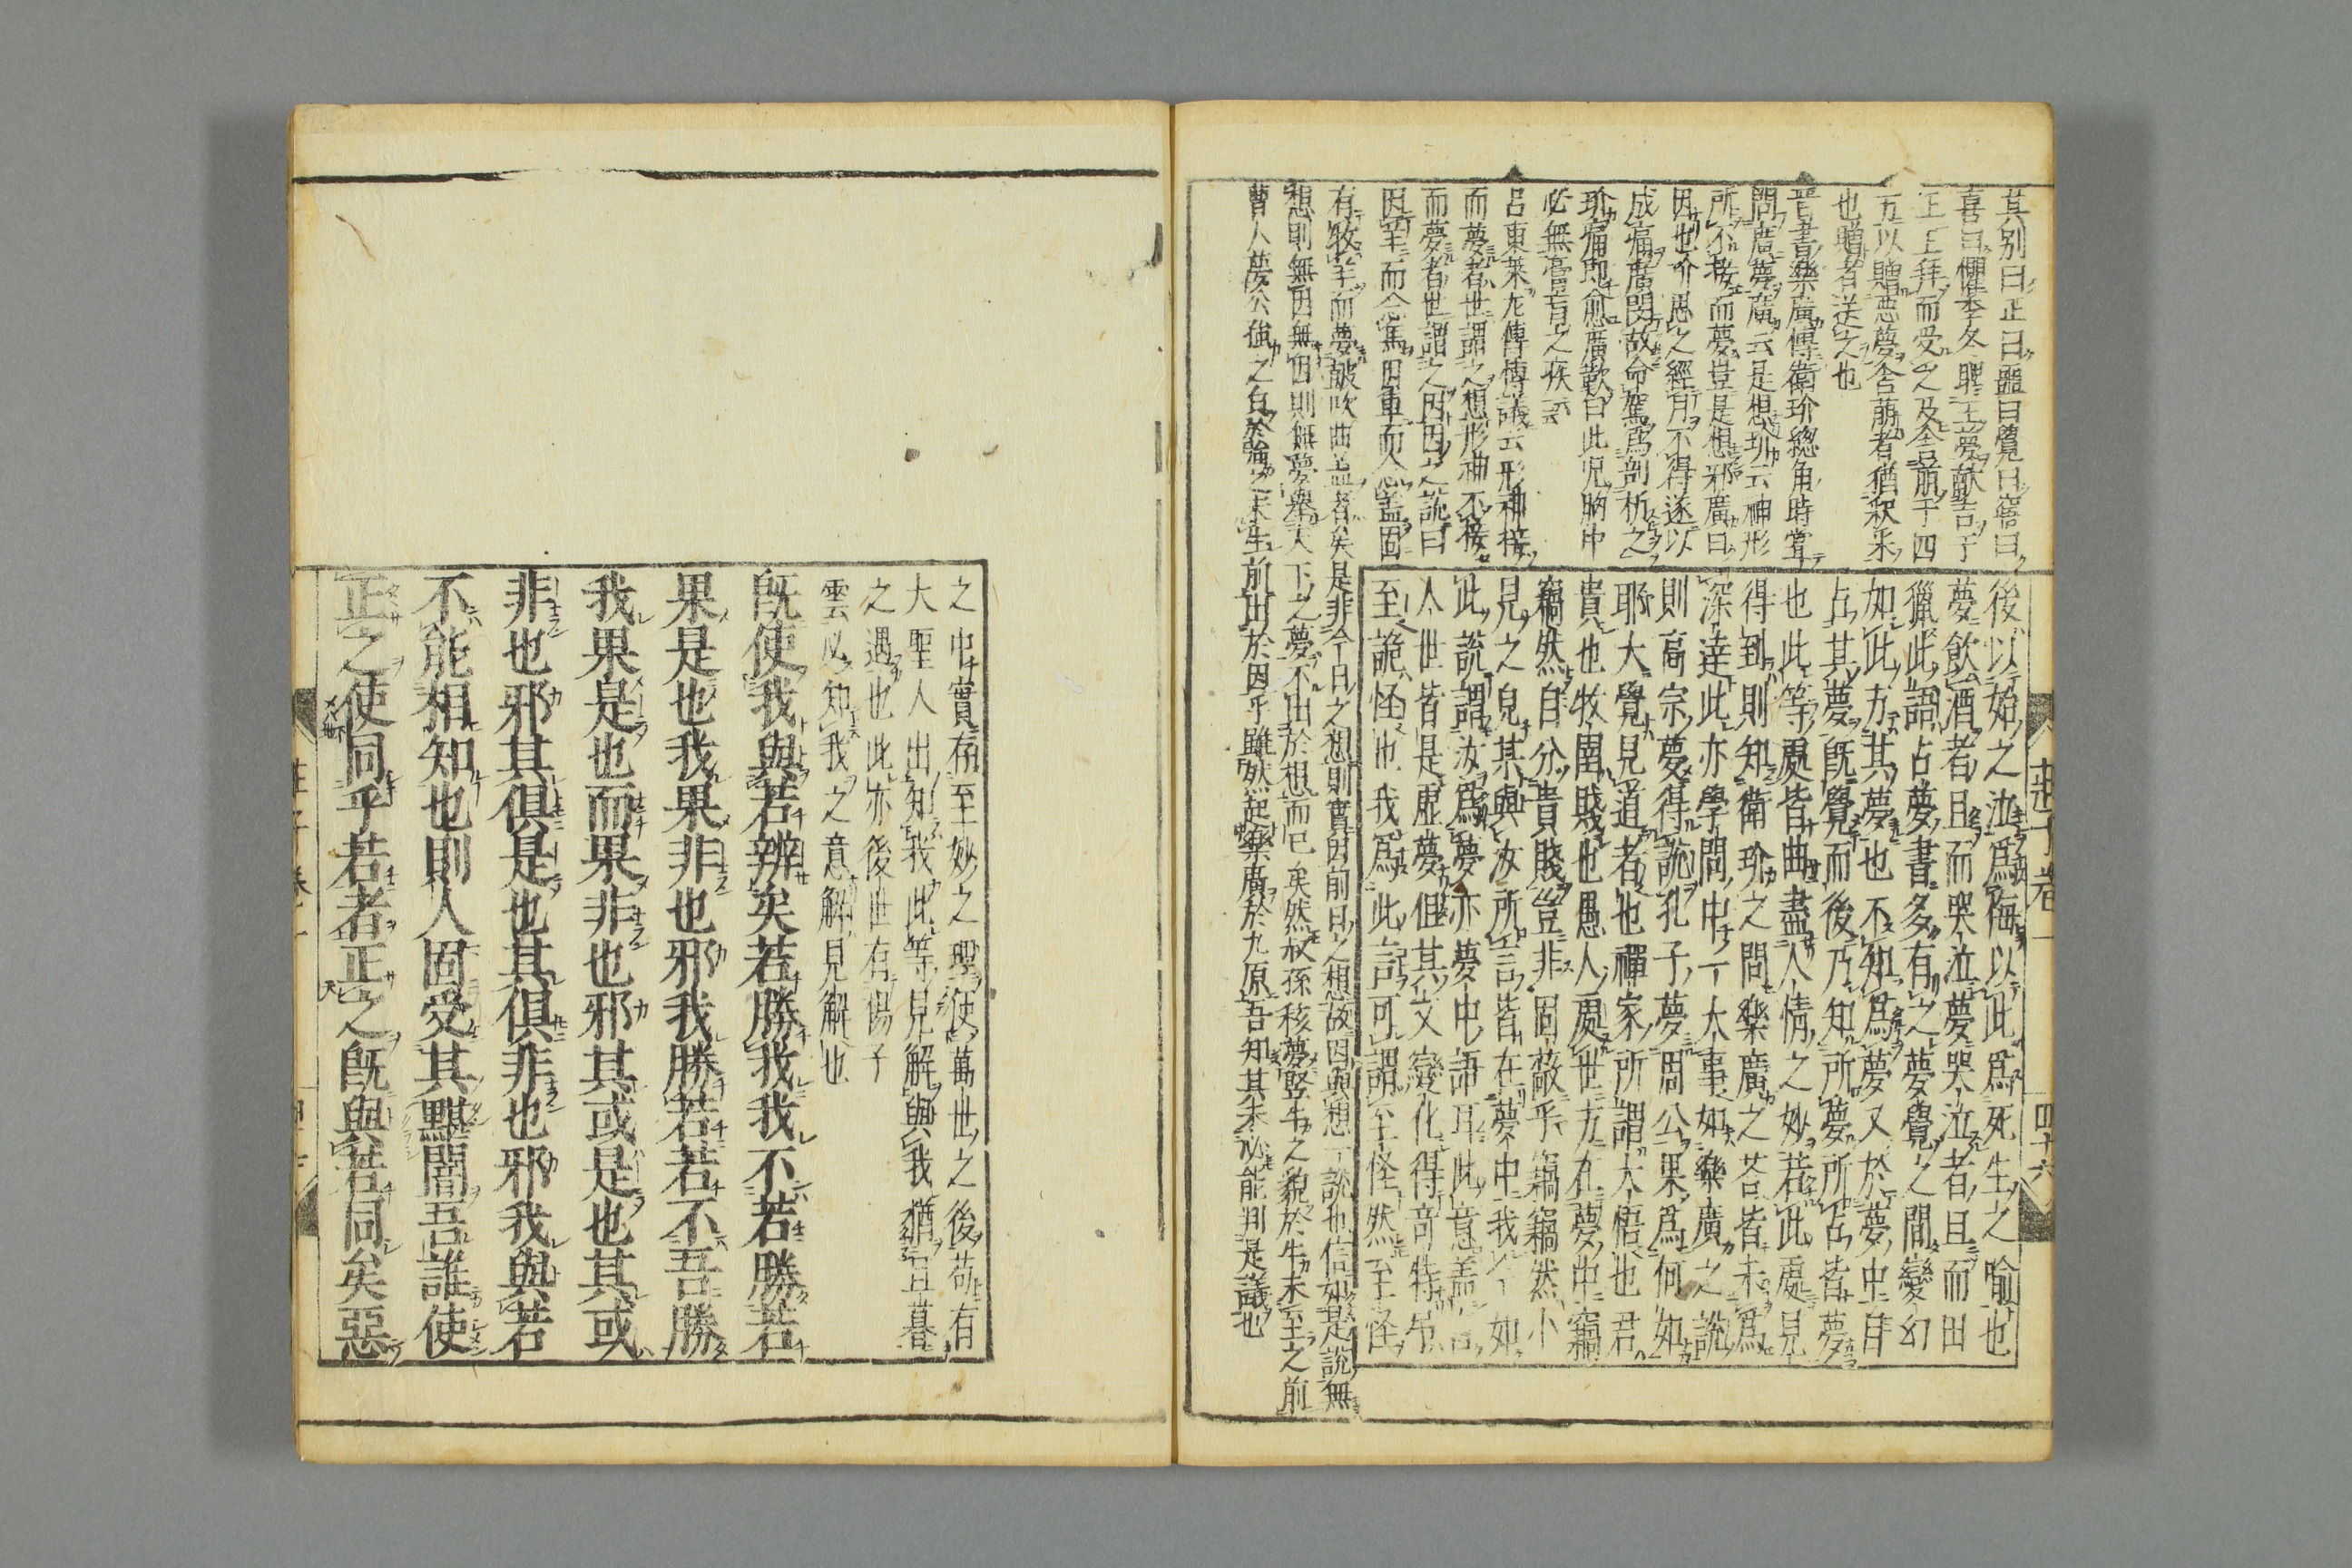 其別曰正曰噩曰覺曰寤曰
喜曰懼季冬聘王夢獻吉于
王王拜而受之乃舍萠于四
方以贈惡夢舍萠者猶釈采
也贈者送之也
晋書樂廣傳衛玠総角時嘗
問廣夢廣云是想玠云神形
所不接而夢豈是想邪廣曰
因也玠思之經月不得遂以
成病廣聞故命駕爲剖析之
玠病即愈廣歎曰此児胸中
必無膏肓之疾云
呂東萊左傳博議云形神接
而夢者世謂之想形神不接
而夢者世謂之因因之說曰
因羊而念馬因車而念盖固
有牧羊而夢鼓吹曲盖者矣是非今日之想則實因前日之想故因與想一說也信如是說無
想則無因無因則無夢舉天下之夢不出於想而已矣然叔孫穆夢竪牛之貌於牛未至之前
曹人夢公強之名於強之未生前出於因乎雖然起樂廣於九原吾知其未必能判是議也
後以始之泣爲悔以此爲死生之喻也
夢飲酒者且而哭泣夢哭泣者且而田
獵此語占夢書多有之夢覺之間變幻
如此方其夢也不知爲夢又於夢中自
占其夢既覺而後乃知所夢所占皆夢
也此等處皆曲盡人情之妙若此處見
得到則知衛玠之問樂廣之荅皆未爲
深達此亦學問中一大事如樂廣之說
則高宗夢得說孔子夢周公果爲何如
耶大覺見道者也禪家所謂大悟也君
貴也牧圉賤也愚人處世方在夢中竊
竊然自分貴賤豈非固蔽乎竊竊然小
見之皃某與汝所言皆在夢中我今如
此說謂汝爲夢亦夢中語耳此意盖言
人世皆是虛夢但其文變化得奇特吊
至詭怪也我爲此言可謂至怪然至怪
莊子卷一
四十六
之中實存至妙之理使萬世之後苟有
大聖人出知我此等見解與我猶旦暮
之遇也此亦後世有揚子
雲必知我之意解見解也
既使我與若辨矣若勝我我不若勝若
果是也我果非也邪我勝若若不吾勝
我果是也而果非也邪其或是也其或
非也邪其俱是也其俱非也邪我與若
不能相知也則人固受其黮闇吾誰使
正之使同乎若者正之既與若同矣惡
莊子卷一